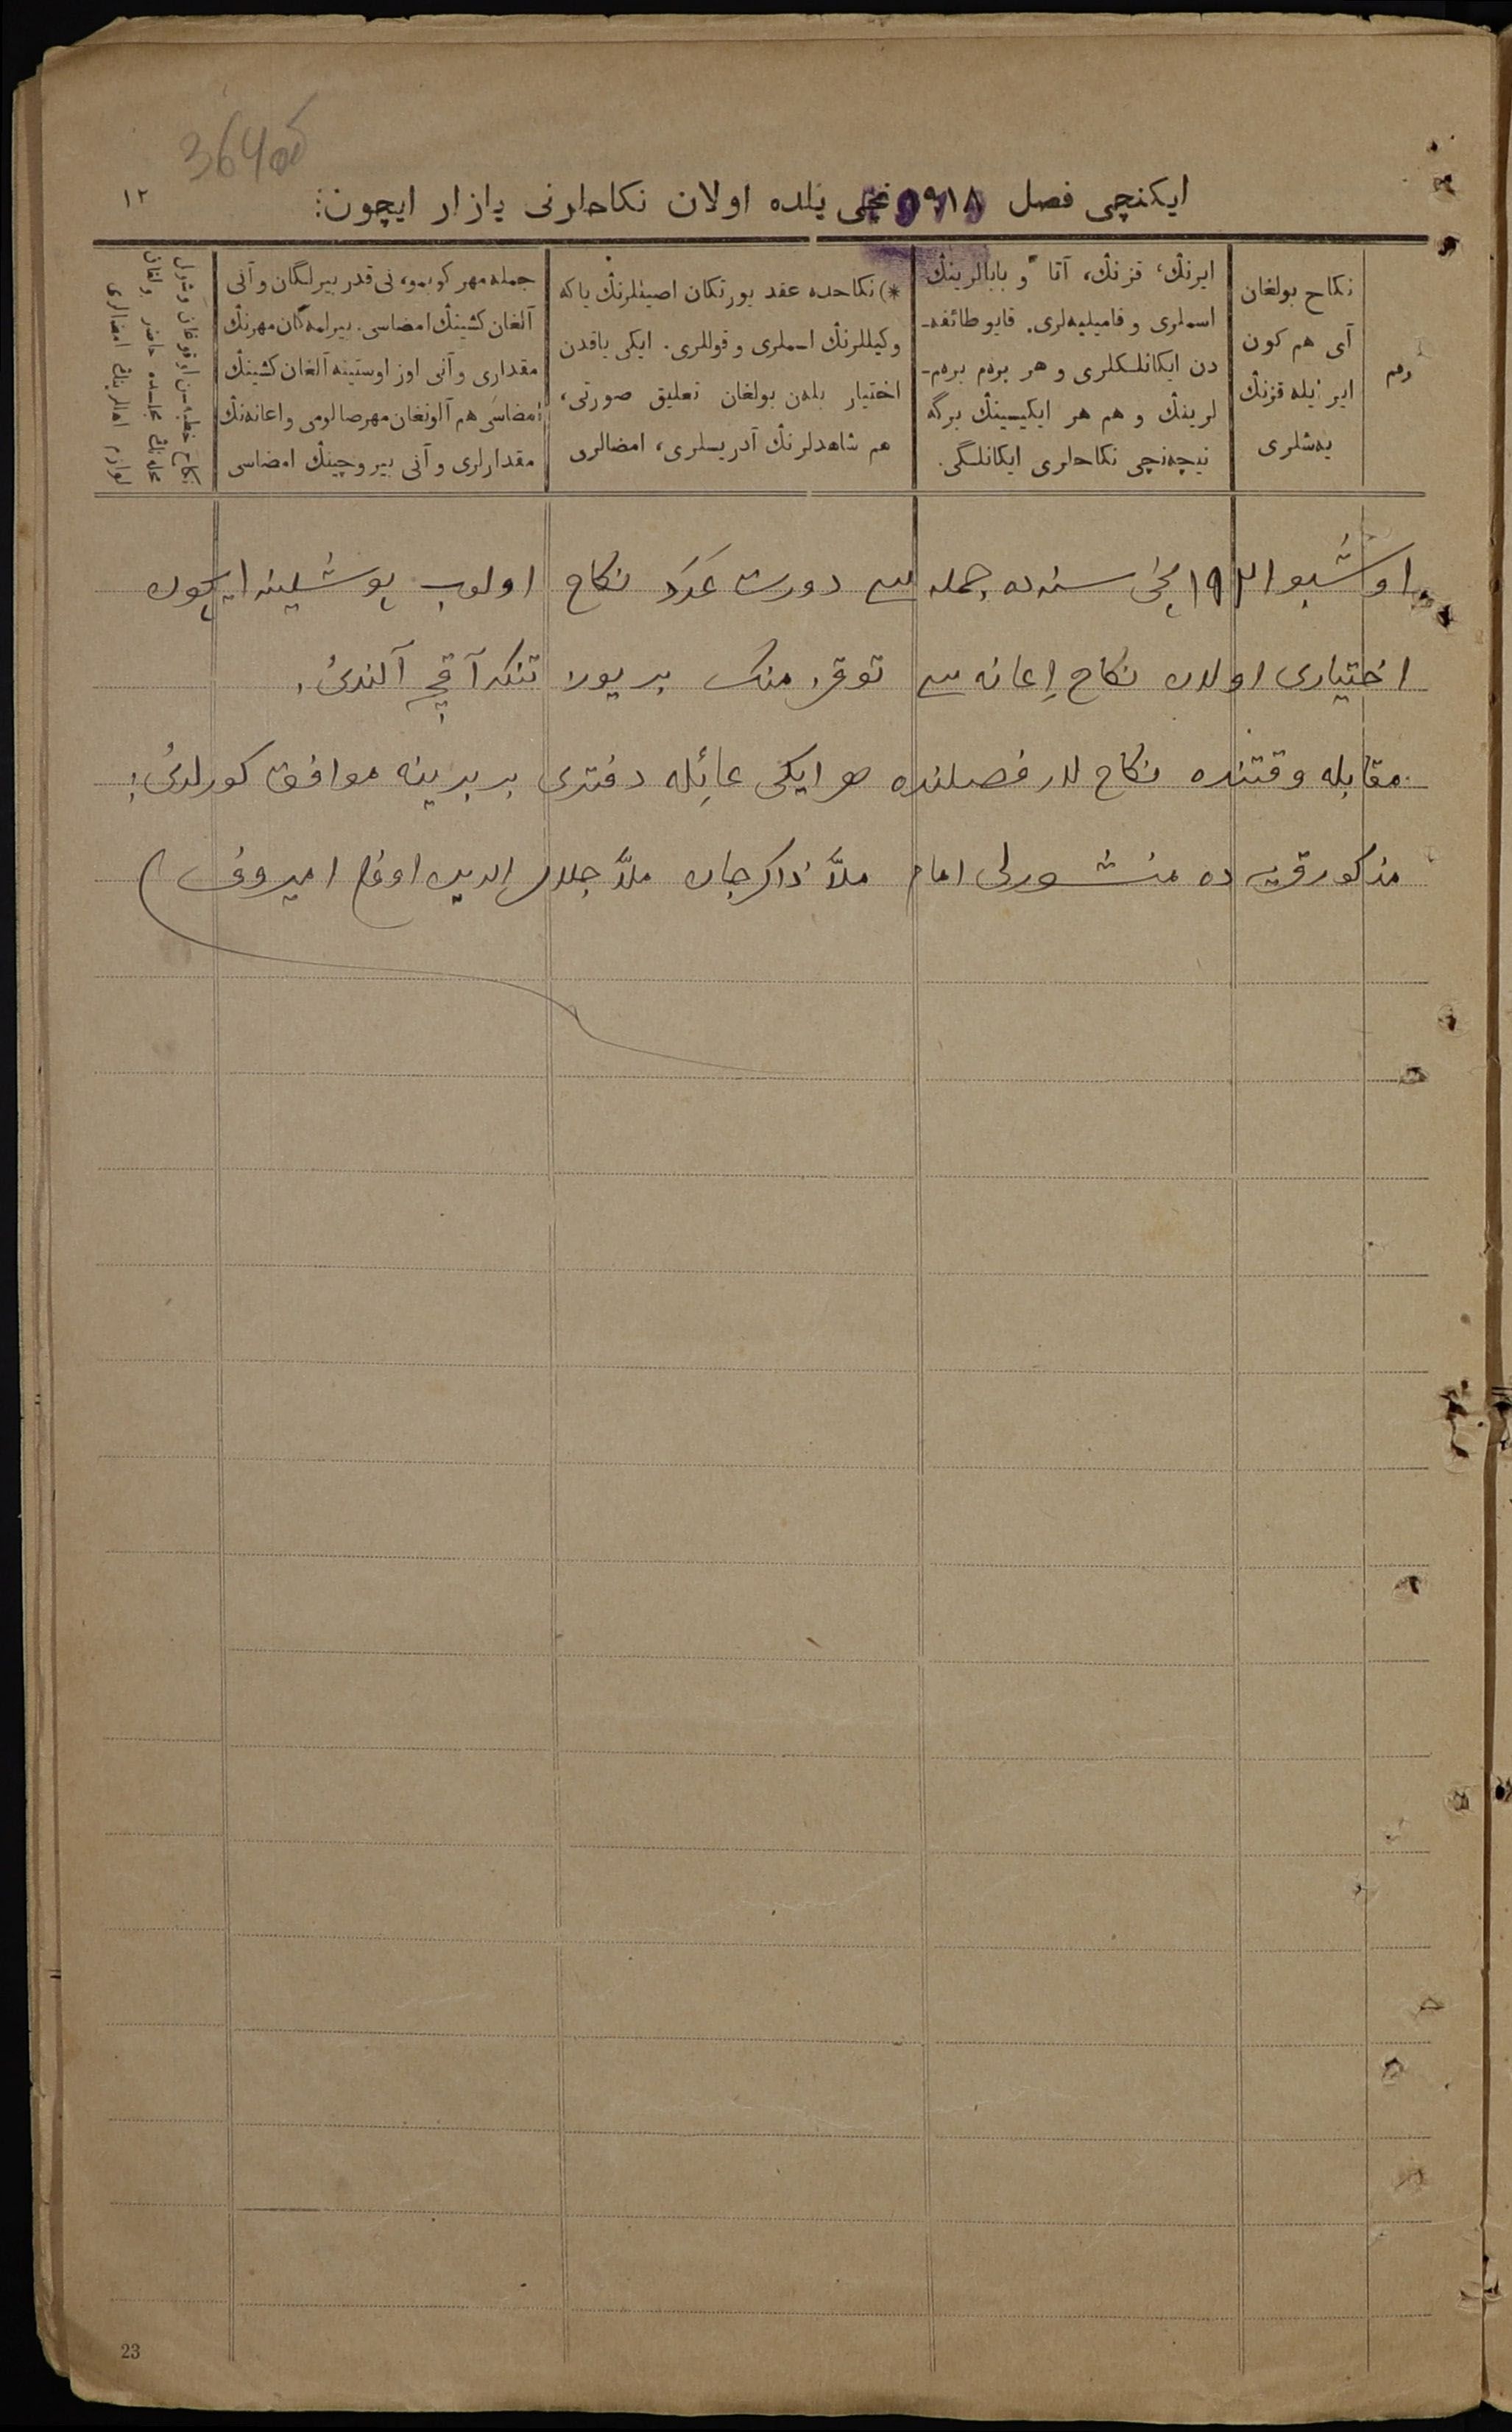 364об
١٢
ایکنچی فصل ١٩١٨ نچی یلده اولان نکاحلرنی یازار ایچون:
رقم
نکاح بولغان
آی هم کون
ایر ایله قزنڭ
یه‌شلری
ایرنڭ، قزنڭ، آتا و بابالرینڭ
اسملری و فامیلیه‌لری. قایو طائفه‌ـ
دن ایکانلسکلری و هر برەم برەم‌ـ
لرینڭ و هم هر ایکیسینڭ برگه
نیچه‌نچی نکاحلری ایکانلگی.
*) نکاحده عقد یورتکان اصیللرنڭ یاکه
وکیللرنڭ اسملری و قوللری. ایکی یاقدن
اختیار بله‌ن بولغان تعلیق صورتی،
هم شاهدلرنڭ آدریسلری، امضالری
جمله مهر کوبمو، نی قدر بیرلگان و آنی
آلغان کشینڭ امضاسی. بیرلمه‌گان مهرنڭ
مقداری و آنی اوز اوستینه آلغان کشینڭ
امضاسی هم آلونغان مهر صالومی و اعانه‌نڭ
مقدارلری و آنی بیروچینڭ امضاسی
نکاح خطبه‌سن اوقوغان و شول
مجلسده حاضر
امضالری
اوشبو ١٩٢١ نچی سنه‌ده جمله سی دورت عدد نکاح اولوب بو شلینه ایچون
اختیاری اولان نکاح اعانه سی توقز منک بر یوز تنکه آقچه آلندی.
مقابله وقتنده نکاح لار فصلنده هر ایکی عائله دفتری بر برینه موافق کورلدی.
مذکور قریه ده منشورلی امام ملّا ذاکرجان ملّا جلال الدین اوغلی امیروف
23